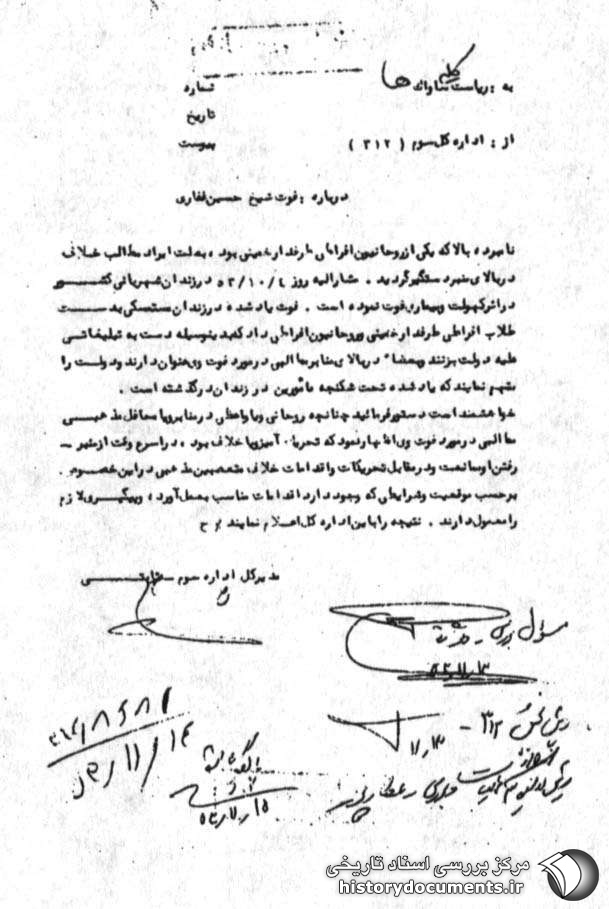 به : ریاست کلیه ساواک ها
شماره
تاریخ
از : اداره کل سوم ( ۳۱۲ )
پیوست
درباره : فوت شیخ حسین غفاری
نامبرده بالا که یکی از روحانیون افراطی طرفدار خمینی بود ، بعلت ایراد مطالب خلاف
در بالای منبر دستگیر گردید . مشارالیه روز ۵۳/۱۰/۶ در زندان شهربانی کشور
در اثر کهولت و بیماری فوت نموده است . فوت یاد شده در زندان بدست
طلاب افراطی طرفدار خمینی و روحانیون افراطی داد که بدینوسیله دست به تبلیغاتی
علیه دولت بزنند و بعضاً در بالای منابر مطالبی در مورد فوت وی عنوان دارند و دولت را
متهم نمایند که یاد شده تحت شکنجه مأمورین در زندان درگذشته است .
خواهشمند است دستور فرمائید چنانچه روحانی و یا واعظی در منابر و یا محافل مذهبی
مطالبی در مورد فوت وی اظهار نمود که تحریک آمیز و یا خلاف بود ، در اسرع وقت از منبر
رفتن او ممانعت و در مقابل تحریکات و اقدامات خلاف متعصبین مذهبی در این خصوص
بر حسب موقعیت و شرایطی که وجود دارد اقدامات مناسب بعمل آورد ، و پیگیری لازم
را معمول دارند . نتیجه را با این اداره کل اعلام نمایند
مدیر کل اداره سوم ثابتی
مسئول بررسی
رئیس بخش ۳۱۲
۱۱٫۱۳
۳۱۲/۸۶۸۱
۵۳/۱۱/۱۴
مرکز بررسی اسناد تاریخی
historydocuments.ir